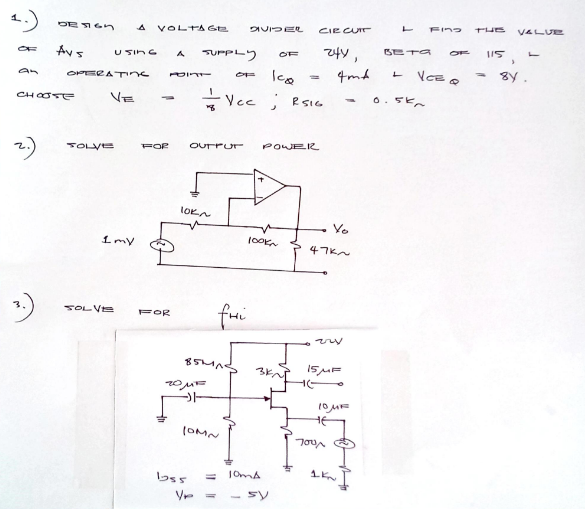 1.) DESIGN A VOLTAGE DIVIDER CIRCUIT & FIND THE VALUE
OF AVS USING A SUPPLY OF 24V, BETA OF 115, &
AN OPERATING POINT OF ICQ = 4mA & VCEQ = 8V.
CHOOSE VE = 1/8 VCC ; RSIG = 0.5KΩ
2.) SOLVE FOR OUTPUT POWER
+
-
10KΩ
Vo
1mV
100KΩ
47KΩ
3.) SOLVE FOR fHi
22V
85MΩ
3KΩ
15µF
20µF
10µF
10MΩ
700Λ
1KΩ
IDSS = 10mA
VP = -5V